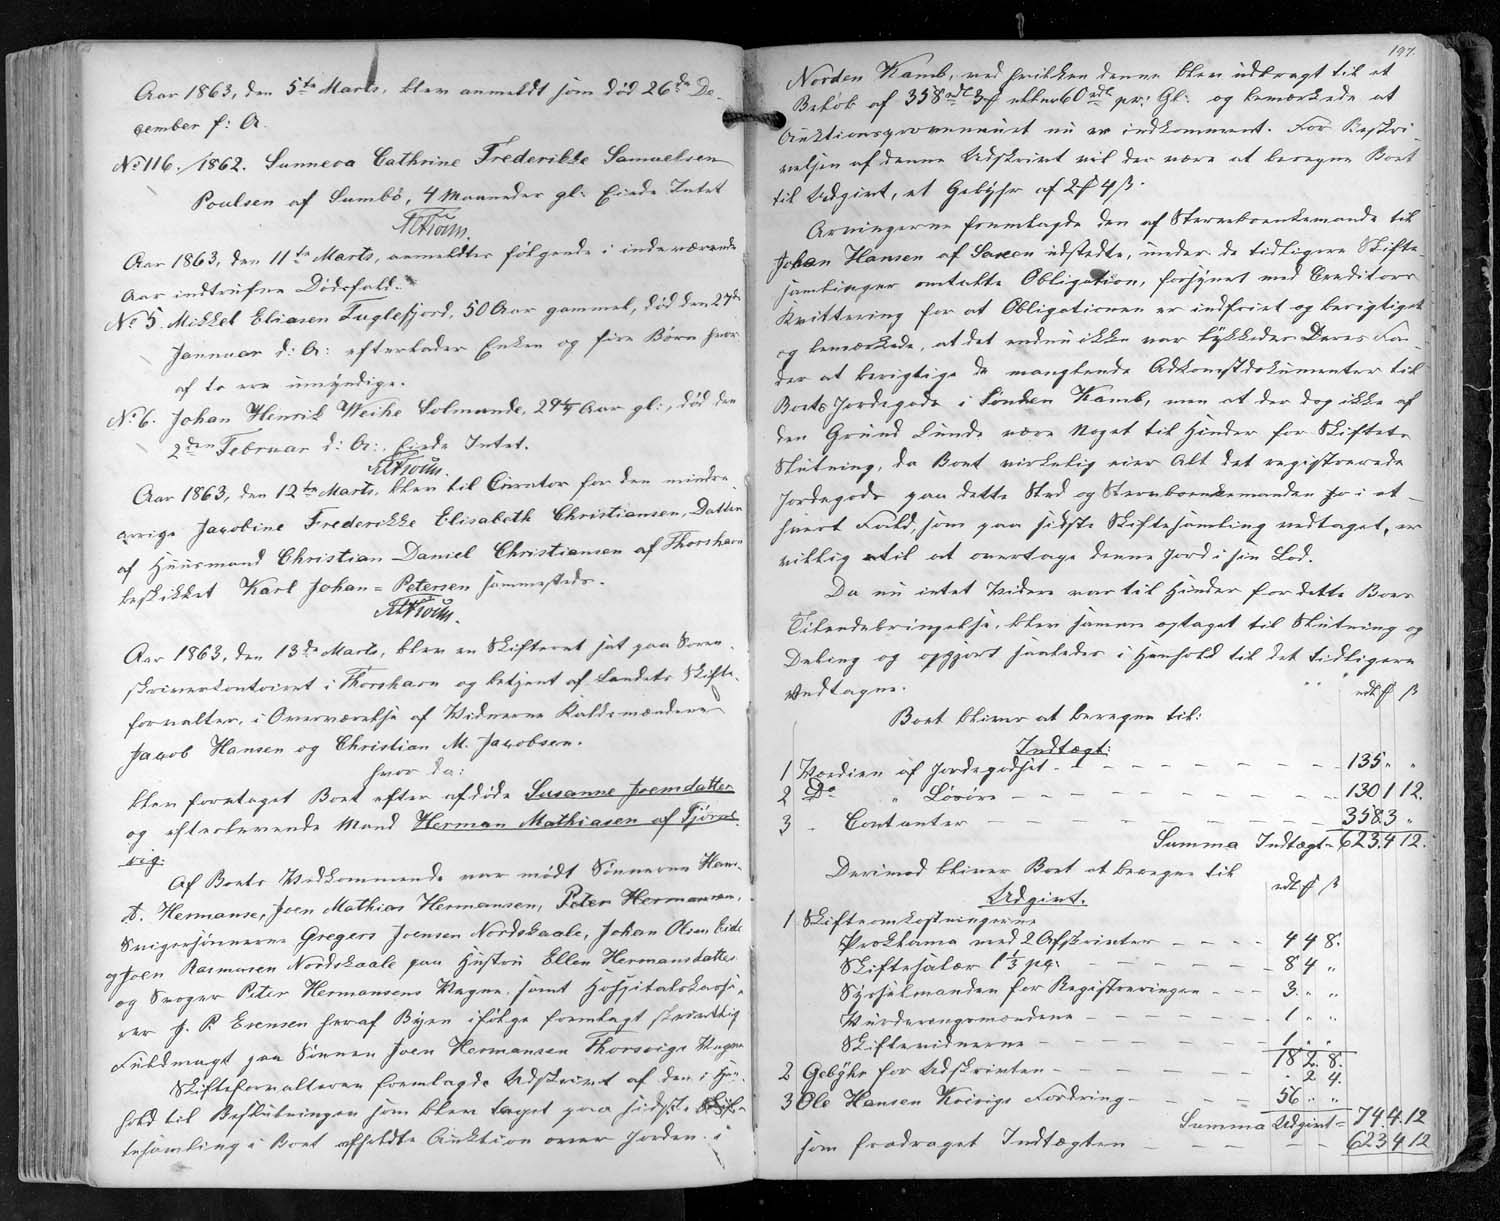 Aar 1863, den 5te Marts, blev anmeldt som død 26de De-
cember f: A.
No 116./1862. Sunneva Cathrine Frederikke Samuelsen
Poulsen af Sumbø, 4 Maaneder gl: Eiede Intet
Aar 1863, den 11te Marts, anmeldtes følgende i indeværende
Aar indtrufne Dødsfald:
No 5. Mikkel Eliasen Fuglefjord, 50 Aar gammel, død den 27de
Januar d: A: efterlader Enken og fire Børn hvor-
af to ere umyndige.
No 6. Johan Henrik Weihe Solmunde, 29 Aar gl:, død den
2den Februar d: A: Eiede Intet.
Aar 1863, den 12te Marts, blev til Curator for den mindre-
aarige Jacobine Frederikke Elisabeth Christiansen, Datter
af Huusmand Christian Daniel Christiansen af Thorshavn
beskikket Karl Johan Petersen sammesteds.
Aar 1863, den 13de Marts, blev en Skifteret sat paa Soren-
skrivercontoiret i Thorshavn og betjent af Landets Skifte-
forvalter, i Overværelse af Vidnerne Kaldsmændene
Jacob Hansen og Christian M. Jacobsen.
hvor da:
blev foretaget Boet efter afdøde Susanne Joensdatter
og efterlevende Mand Herman Mathiasen af Tjørnu-
vig.
Af Boets Vedkommende var mødt Sønnerne Hans
D. Hermansen, Joen Mathias Hermansen, Peter Hermansen,
Svigersønnerne Gregers Joensen Nordskaale, Johan Olsen Eide
og Joen Rasmusen Nordskaale paa Hustru Ellen Hermansdatters
og Svoger Peter Hermansens Vegne samt Hospitalskasse-
rer J. P. Evensen her af Byen ifølge fremlagt skriftlig
Fuldmagt paa Sønnen Joen Hermansen Thorsvigs Vegne
Skifteforvalteren fremlagde Udskrivt af den i Hen-
hold til Beslutningen som blev taget paa sidste Skif-
tesamling i Boet afholdte Auktion over Jorden i
197.
Norden Kamb, ved hvilken denne blev udbragt til et
Beløb af 358 rdl 3 ℔ eller 60 rdl pr: Gl: og bemærkede at
Auktionsprovenuet nu er indkommet. For Beskri-
velsen af denne Udskrivt vil der være at beregne Boet
til Udgivt, et Gebyhr af 2 ℔ 4 ß.
Arvingerne fremlagde den af Sterveboenkemande til
Johan Hansen af Saxen udstedte, under de tidligere Skifte-
samlinger omtalte Obligation, forsynet med Creditors
Kvittering for at Obligationen er indfriet og berigtiget
og bemærkede, at det endnu ikke var lykkedes Deres Fa-
der at berigtige de manglende Adkomstdokumenter til
Boets Jordegods i Sønden Kamb, men at der dog ikke af
den Grund kunde være Noget til Hinder for Skiftets
Slutning, da Boet virkelig eier Alt det registrerede
Jordegods paa dette Sted og Sterveboenkemanden jo i et-
hvert Fald, som paa sidste Skiftesamling vedtaget, er
villig til at overtage denne Jord i sin Lod.
Da nu intet Videre var til Hinder for dette Boes
Tilendebringelse, blev samme optaget til Slutning og
Deling og opgjort saaledes i Henhold til det tidligere
Vedtagne.
rdl ℔ ß
Boet bliver at beregne til:
Indtægt:
1 Værdien af Jordegodset - - - 135 " "
2 Do " Løsøre - - - 130 1 12.
3 - Contanter - - - 358. 3 "
Summa Indtægt = 623. 4 12.
Derimod bliver Boet at beregne til
rdl ℔ ß
Udgivt.
1 Skifteomkostningerne
Proklama med 2 Afskrivter - - - 4 4 8.
Skiftesalær 1⅓ pC. - - - 8 4 "
Sysselmanden for Registreringen - - - 3. " "
Vurderingsmændene - - - 1 " "
Skiftevidnerne - - - 1 " "
18 2. 8.
2 Gebyhr for Udskrivten - - - - 2 4.
3 Ole Hansen Kvivigs Fordring - - - 56 " "
Summa Udgivt = 74. 4. 12
som fradraget Indtægten - - - 623 4 12